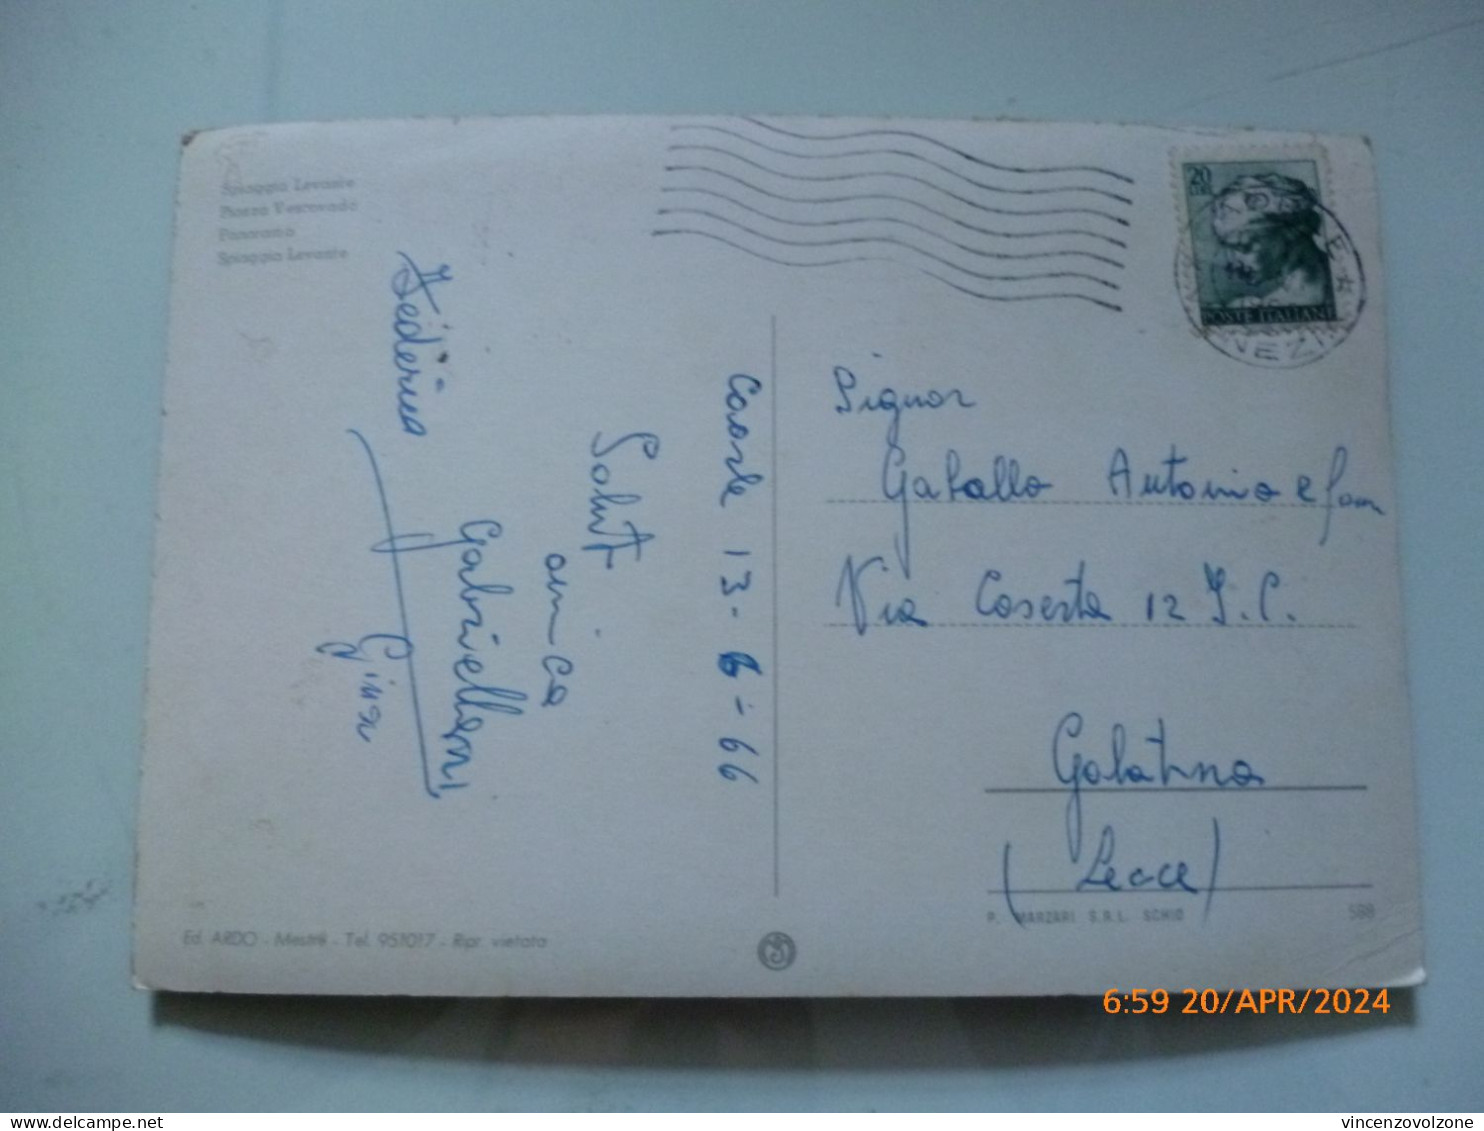 Spiaggia Levante
Piazza Vescovado
Panorama
Spiaggia Levante
Caorle 13-6-66
Saluti
amica
Gabriella
Federica
Gina
20
POSTE ITALIANE
Signor
Gaballo Antonio e fam
Via Caserta 12 I.C.
Galatina
(Lecce)
P. MARZARI S.R.L. SCHIO
598
Ed. ARDO - Mestre - Tel. 951017 - Ripr. vietata
6:59 20/APR/2024
vincenzovolzone